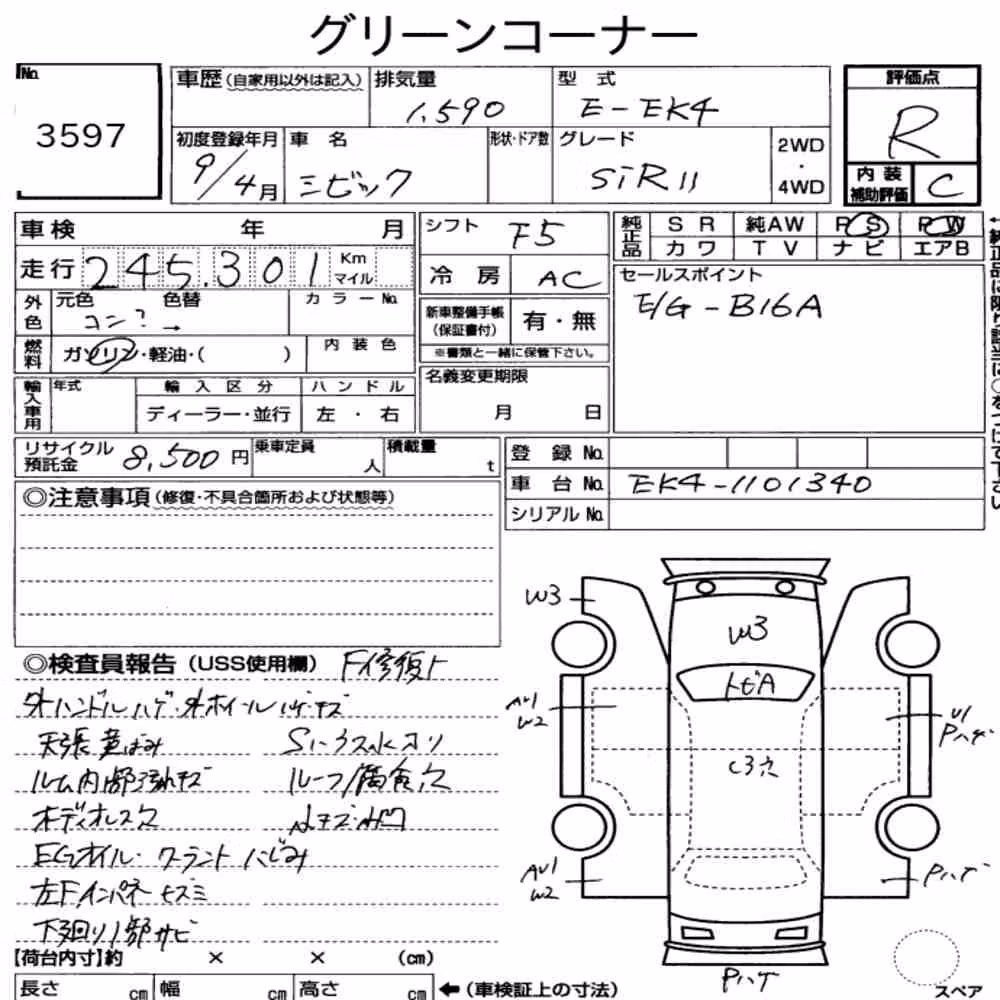 グリーンコーナー
No. 3597
車歴(自家用以外は記入) 排気量 1,590 型式 E-EK4
評価点 R
初度登録年月 9/4月 車名 シビック 形状・ドア数 グレード SiR II 2WD・4WD
内装補助評価 C
車検 年 月 シフト F5
純正品 SR 純AW PS PW
カワ TV ナビ エアB
走行 245,301 Km マイル
冷房 AC
セールスポイント
E/G-B16A
外色 元色 色替 カラーNo.
コン? →
新車整備手帳(保証書付) 有・無
※書類と一緒に保管下さい。
燃料 ガソリン・軽油・( ) 内装色
輸入車用 年式 輸入区分 ハンドル
ディーラー・並行 左・右
名義変更期限 月 日
リサイクル預託金 8,500円 乗車定員 人 積載量 t
登録No.
車台No. EK4-1101340
シリアルNo.
◎注意事項(修復・不具合箇所および状態等)
◎検査員報告(USS使用欄) F修復ト
外ハンドルハゲ・外ホイールハゲキズ
天張黄ばみ Sハウス水コリ
ルーム内部汚れキズ ルーフ腐食穴
オーディオレス穴
EGオイル・クーラントにじみ
左Fインパネキズミ
下廻り1部サビ
W3
W3
トビA
AU1
W2
U1
Pハゲ
C3穴
AU1
W2
Pハゲ
Pハゲ
スペア
【荷台内寸】約 × × (cm)
長さ cm 幅 cm 高さ cm ←(車検証上の寸法)